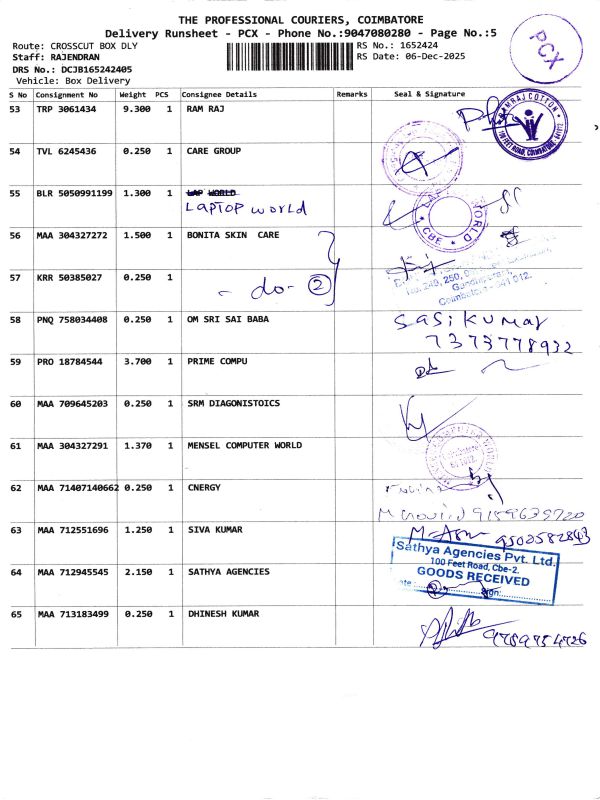 THE PROFESSIONAL COURIERS, COIMBATORE
Delivery Runsheet - PCX - Phone No.:9047080280 - Page No.:5
PCX
Route: CROSSCUT BOX DLY
RS No.: 1652424
Staff: RAJENDRAN
RS Date: 06-Dec-2025
DRS No.: DCJB165242405
Vehicle: Box Delivery
S No Consignment No Weight PCS Consignee Details Remarks Seal & Signature
53 TRP 3061434 9.300 1 RAM RAJ
RAMRAJ COTTON
100 FEET ROAD, COIMBATORE
54 TVL 6245436 0.250 1 CARE GROUP
55 BLR 5050991199 1.300 1 LAP WORLD
LAPTOP world
WORLD
CBE
56 MAA 304327272 1.500 1 BONITA SKIN CARE
57 KRR 50385027 0.250 1
- do - 2
Gandhipuram,
Coimbatore - 641 012.
58 PNQ 758034408 0.250 1 OM SRI SAI BABA
Sasikumar
7373778932
59 PRO 18784544 3.700 1 PRIME COMPU
60 MAA 709645203 0.250 1 SRM DIAGONISTOICS
61 MAA 304327291 1.370 1 MENSEL COMPUTER WORLD
62 MAA 71407140662 0.250 1 CNERGY
63 MAA 712551696 1.250 1 SIVA KUMAR
9502582843
64 MAA 712945545 2.150 1 SATHYA AGENCIES
Sathya Agencies Pvt. Ltd.
100 Feet Road, Cbe-2.
GOODS RECEIVED
65 MAA 713183499 0.250 1 DHINESH KUMAR